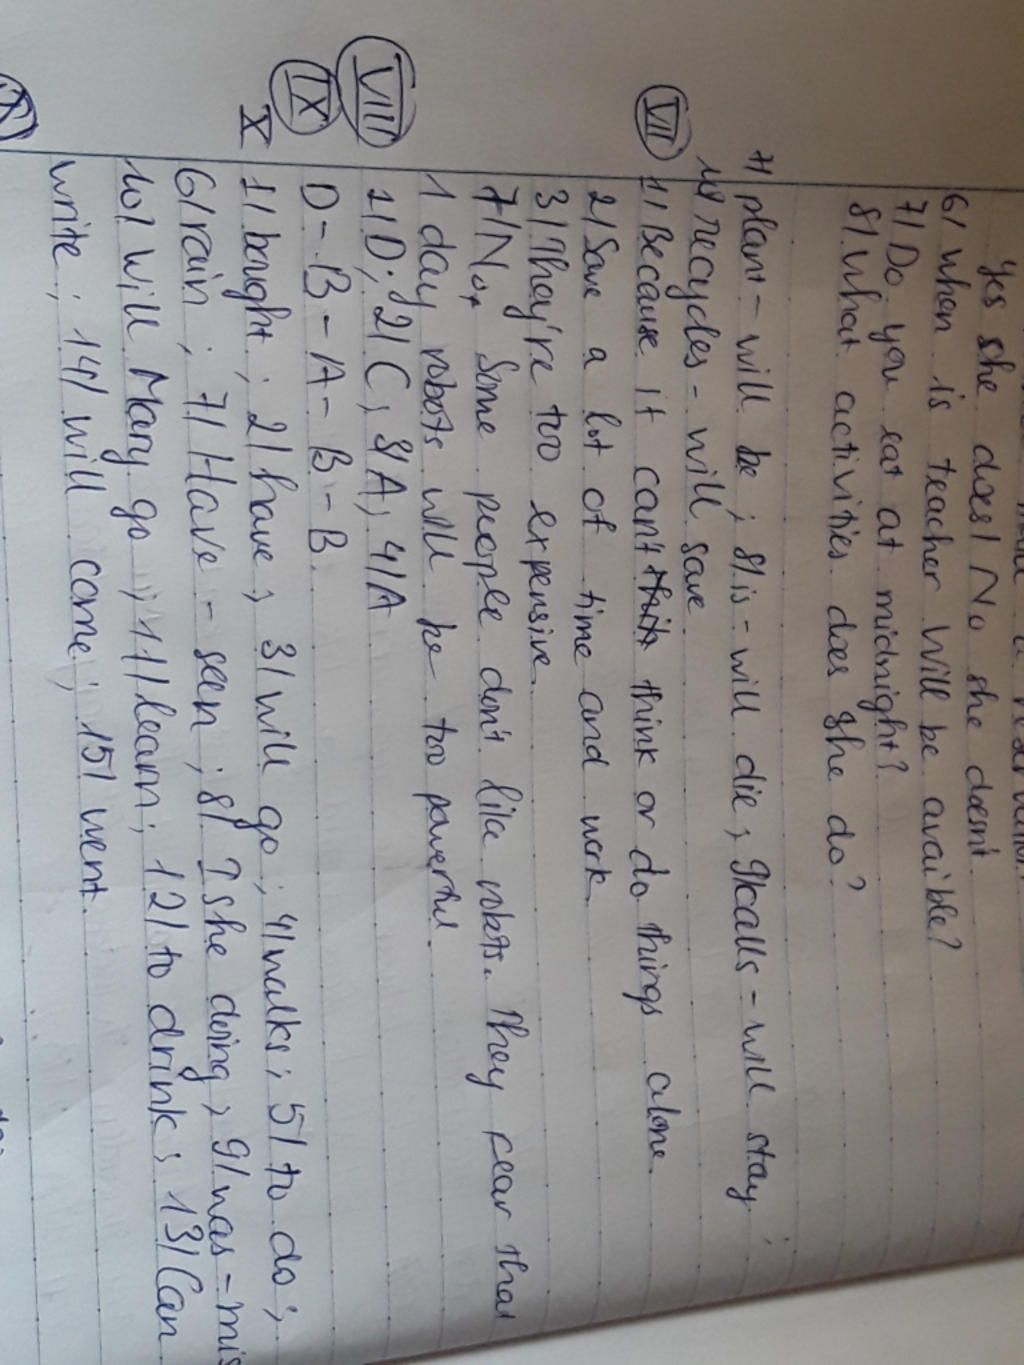 Yes she does / No she doesn't
6/ When is teacher will be avaible?
7/ Do you eat at midnight?
8/ What activities does she do?
7/ plant - will be; 8/ is - will die; 9/ calls - will stay;
10/ recycles - will save
VII 1/ Because it can't think or do things alone.
2/ Save a lot of time and work
3/ They're too expensive.
7/ No, Some people don't like robots. They fear that
1 day robots will be too powerful.
VIII 1/ D; 2/ C; 3/ A; 4/ A
IX D - B - A - B - B
X 1/ bought; 2/ have; 3/ will go; 4/ walks; 5/ to do;
6/ rain; 7/ Have - seen; 8/ ? she doing; 9/ was - mis
10/ will Mary go; 11/ learn; 12/ to drink; 13/ Can
write; 14/ will come; 15/ went.